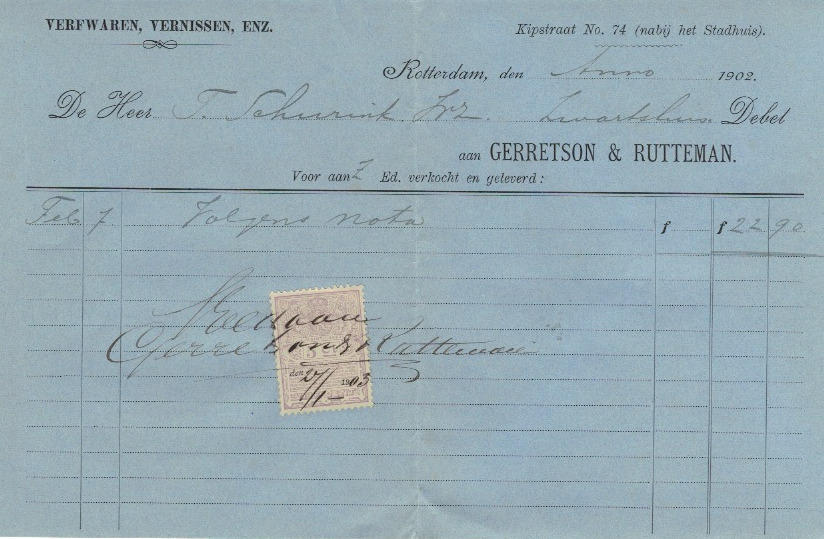 VERFWAREN, VERNISSEN, ENZ.
Kipstraat No. 74 (nabij het Stadhuis).
Rotterdam, den Anno 1902.
De Heer T. Schurink Jrz. Zwartsluis Debet
aan GERRETSON & RUTTEMAN.
Voor aan Z Ed. verkocht en geleverd:
Feb 7 Volgens nota f f 22 90
Voldaan
Gerretson & Rutteman
den 27/1 - 1903